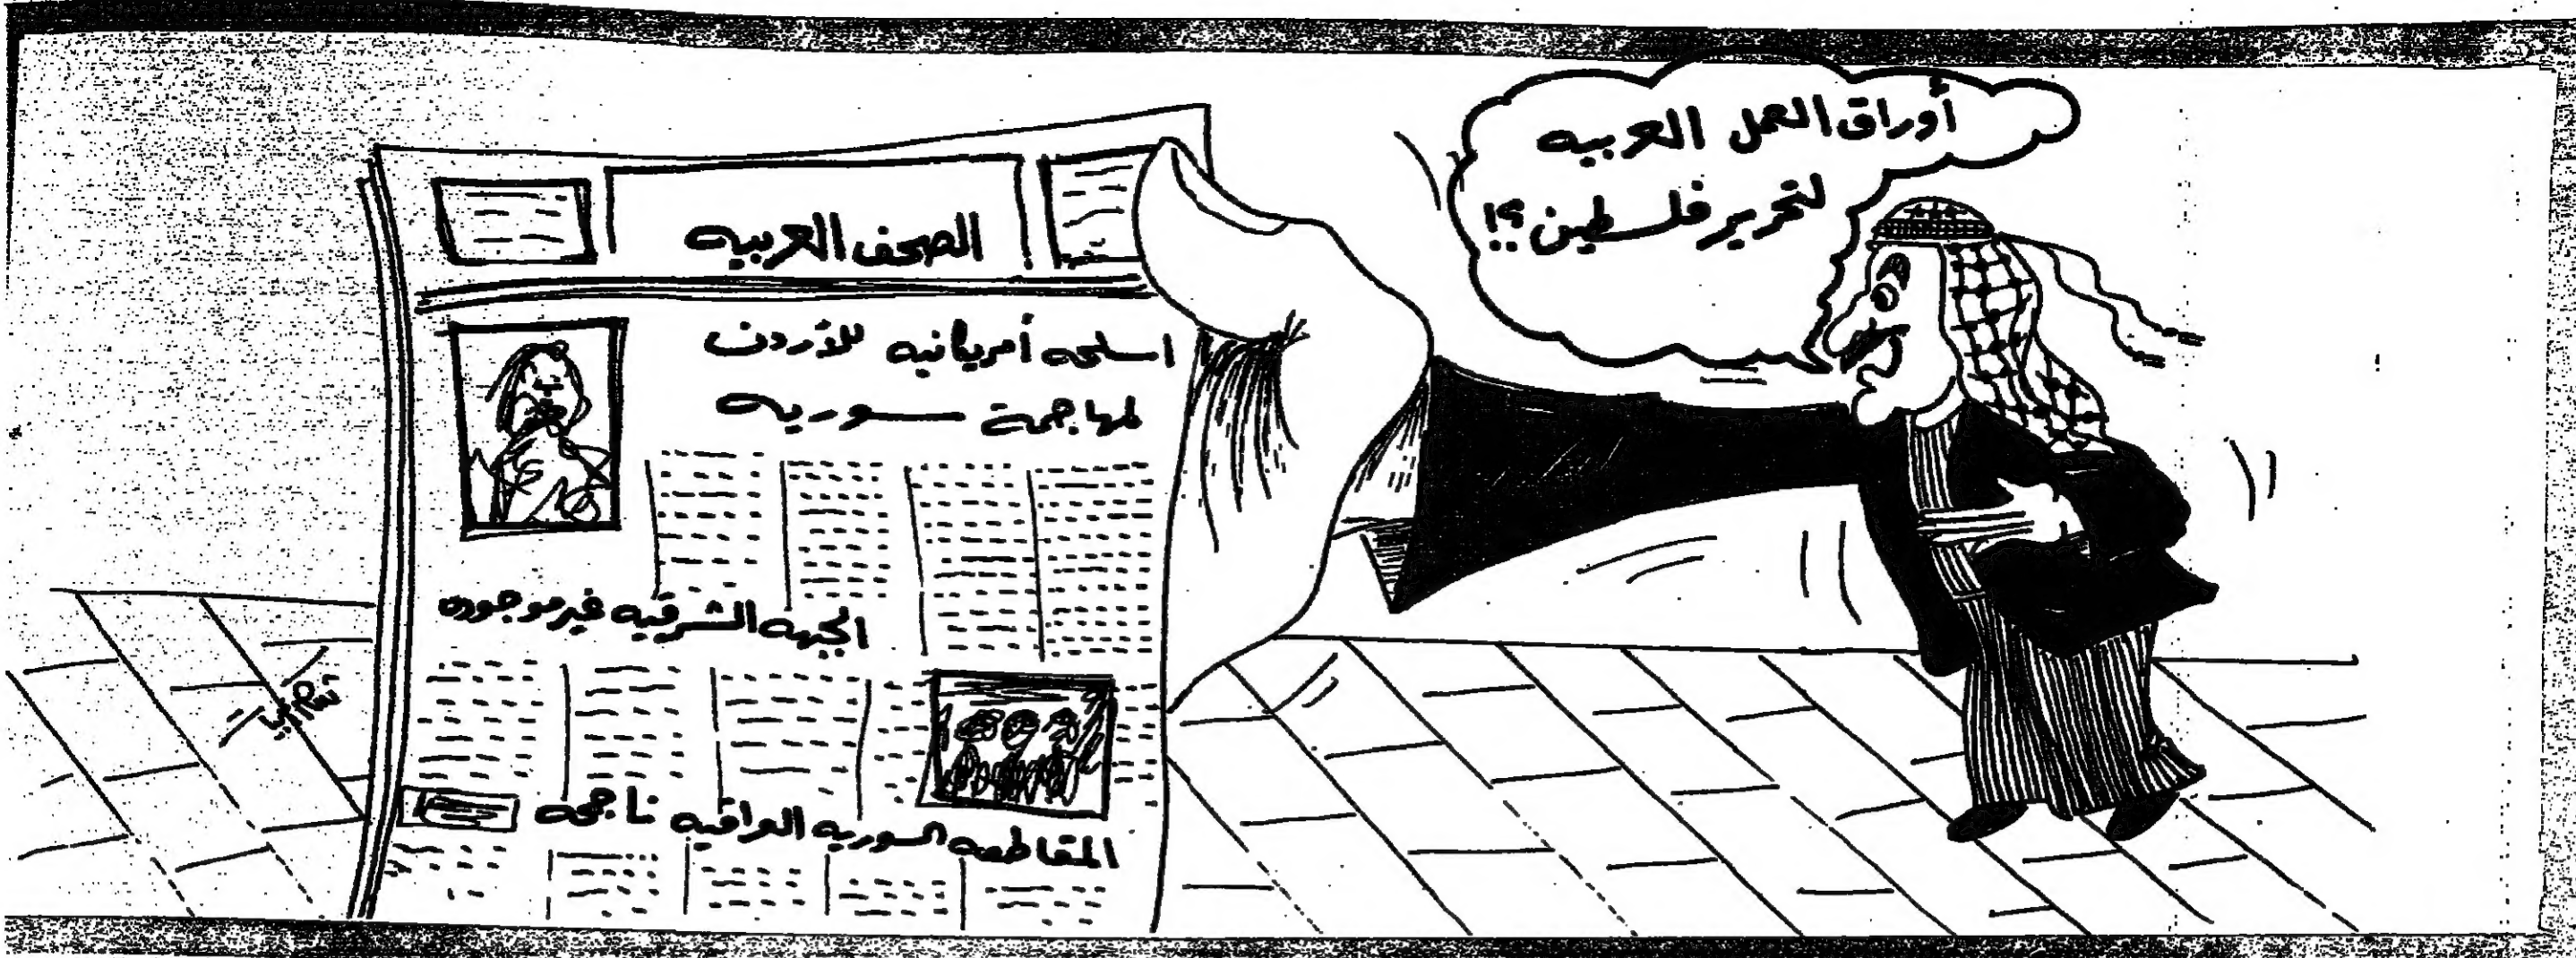 أوراق العمل العربيه
لتحرير فلسطين؟!
الصحف العربيه
اسلحه أمريكانيه للأردن
لمهاجمة سوريه
الجبهه الشرقيه غير موجوده
المقاطعه السوريه العراقيه ناجحه